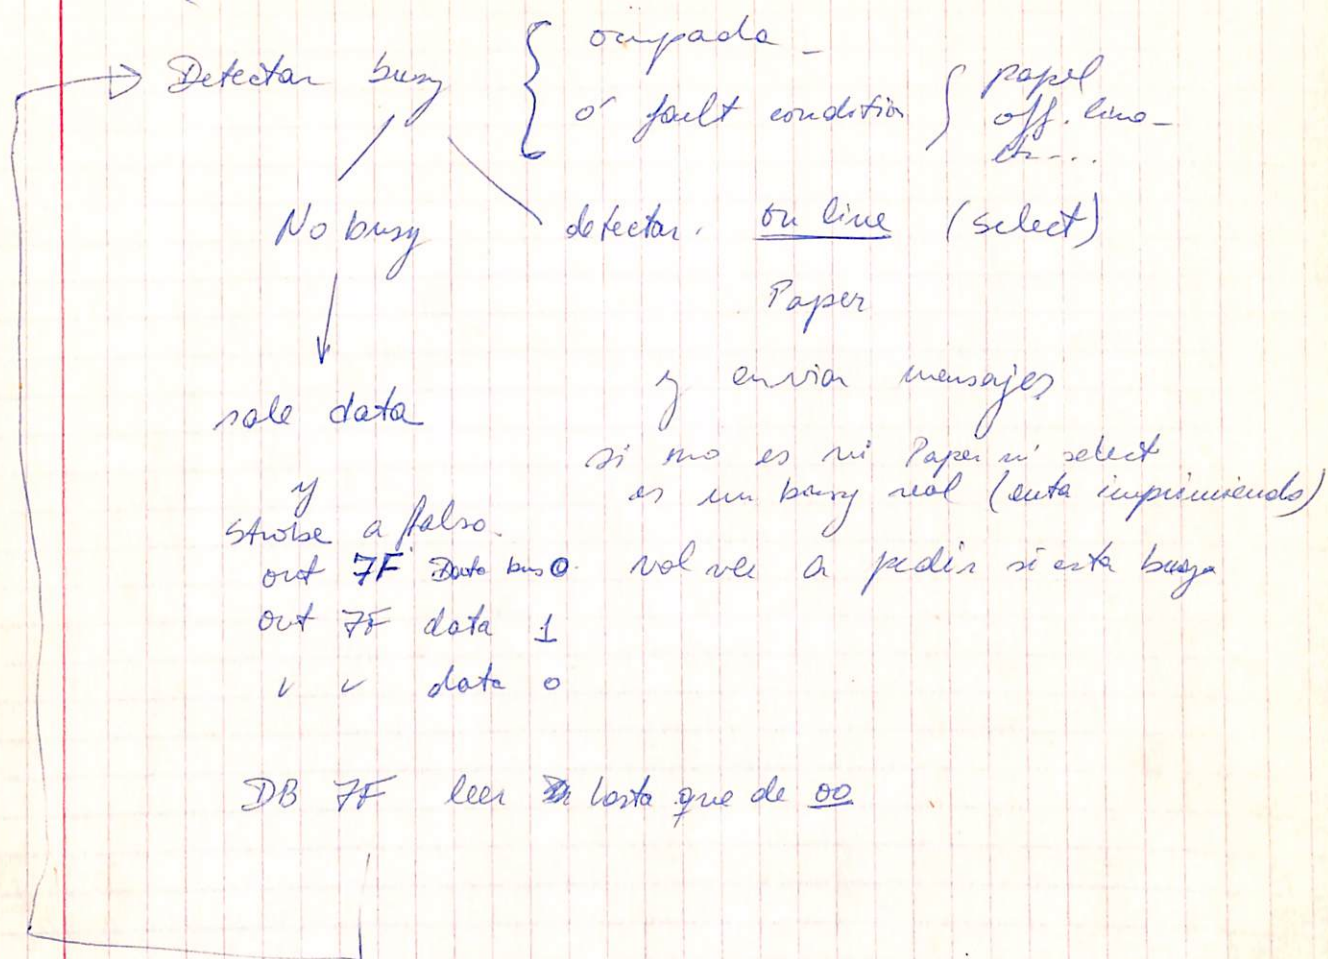 Detectar busy
ocupada -
ó fault condition
papel
off. line -
etc...
No busy
detectar. on line (select)
Paper
y enviar mensajes
sale data
si no es ni Paper ni select
es un busy real (esta imprimiendo)
y
Strobe a falso.
out 7F Data bus 0.
volver a pedir si esta busy
out 7F data 1
data 0
DB 7F leer hasta que de 00